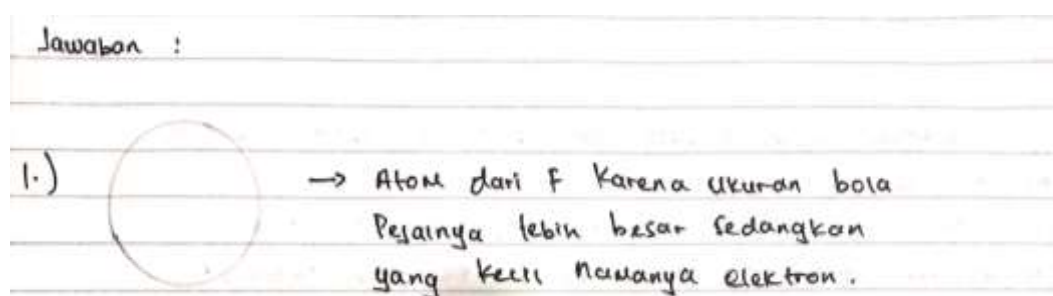 Jawaban :
1.) → Atom dari F Karena Ukuran bola
Pejalnya lebih besar Sedangkan
yang kecil namanya elektron.